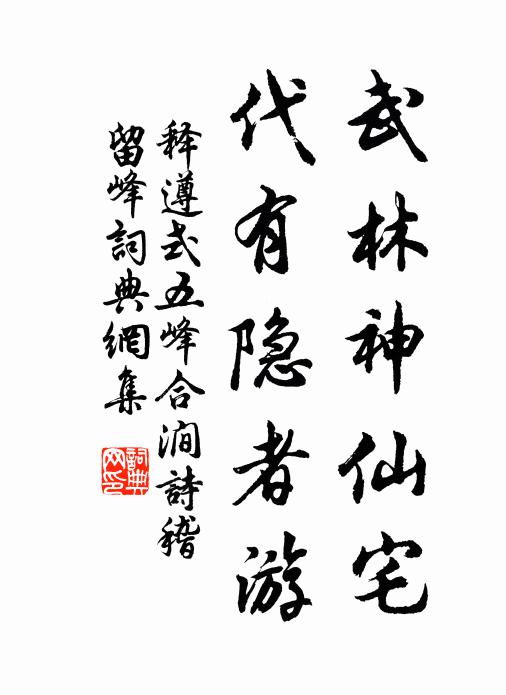 武林神仙宅
代有隐者游
释遵式五峰合涧詩稽
留峰詞典網集
詞典
网印